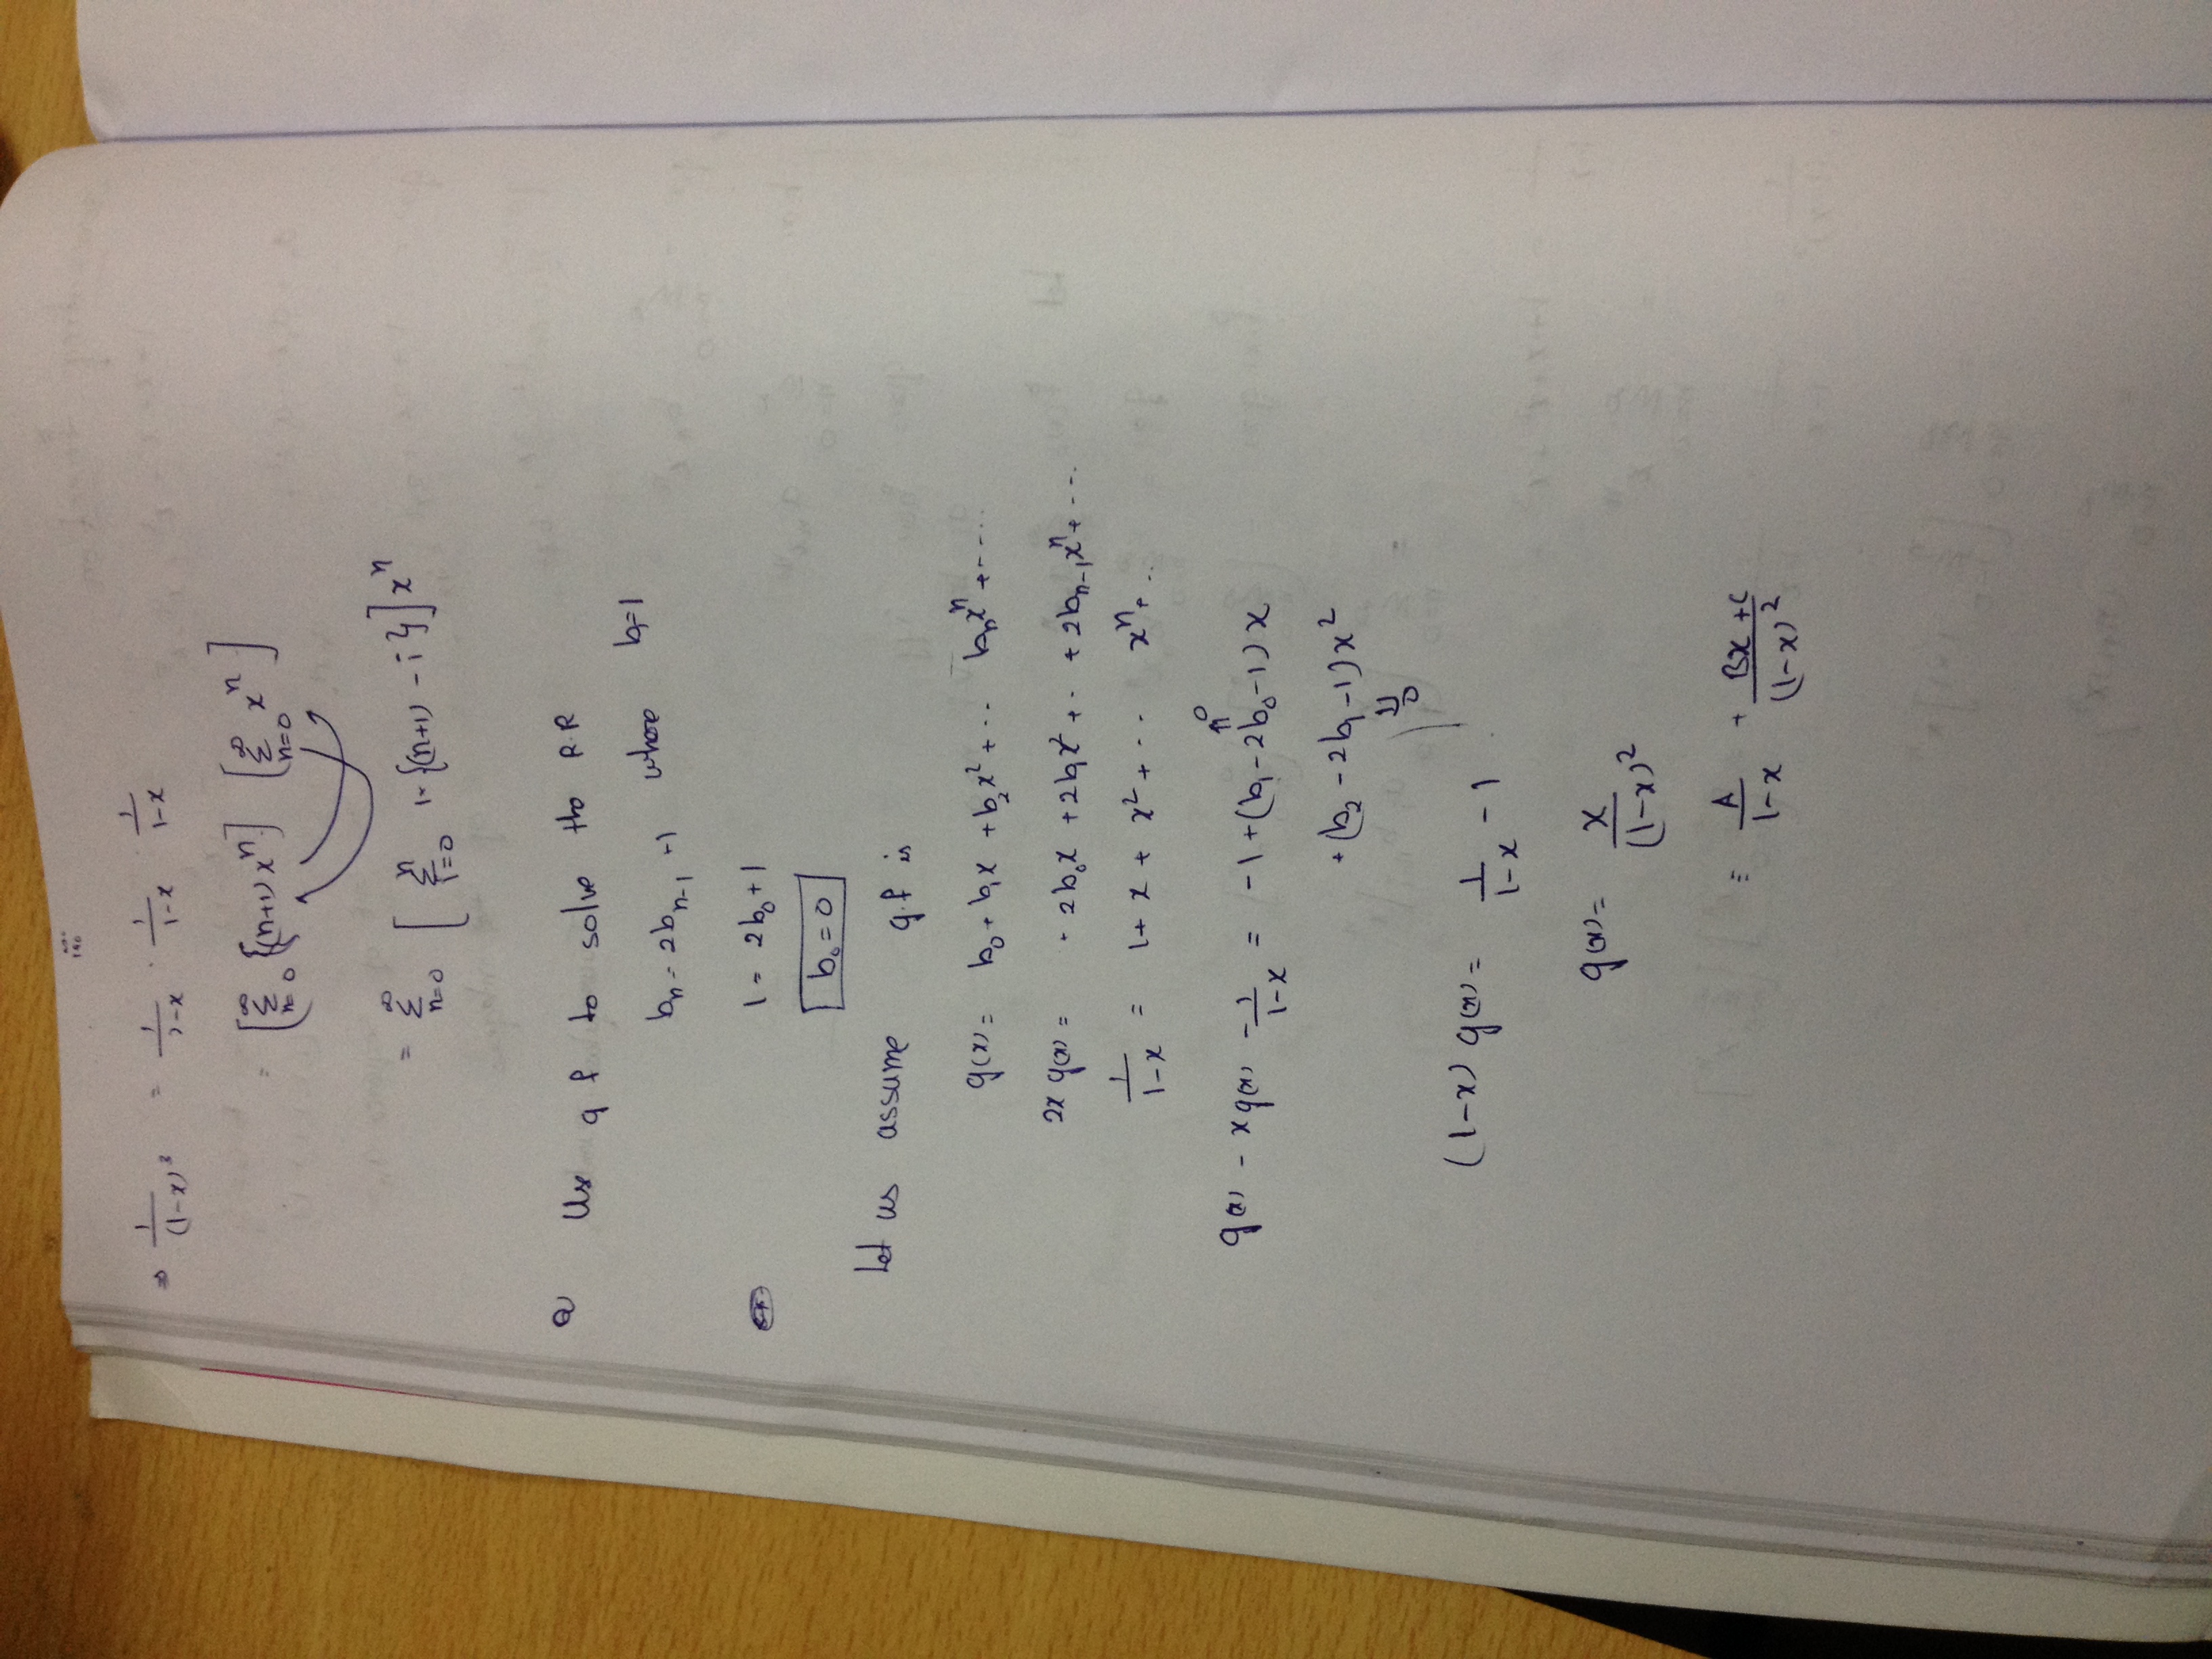 ⇒ 1/(1-x)³ = 1/1-x · 1/1-x · 1/1-x
= [∑_{n=0}^∞ {(n+1)x^n] [∑_{n=0}^∞ x^n]
= ∑_{n=0}^∞ [∑_{i=0}^n 1·{(n+1)-i}] x^n
Q Use g f to solve the R.R
b_n = 2b_{n-1} +1 where b_1=1
1 = 2b_0+1
b_0 = 0
Let us assume g.f is
g(x) = b_0 + b_1x + b_2x² + ... b_nx^n + ...
2x g(x) = · 2b_0x + 2b_1x² + .. + 2b_{n-1}x^n + ...
1/1-x = 1 + x + x² + .. x^n + ..
g(x) - x g(x) - 1/1-x = -1 + (b_1 - 2b_0 - 1)x
+ (b_2 - 2b_1 - 1)x²
(1-x) g(x) = 1/1-x - 1
g(x) = x/(1-x)²
= A/1-x + Bx+C/(1-x)²